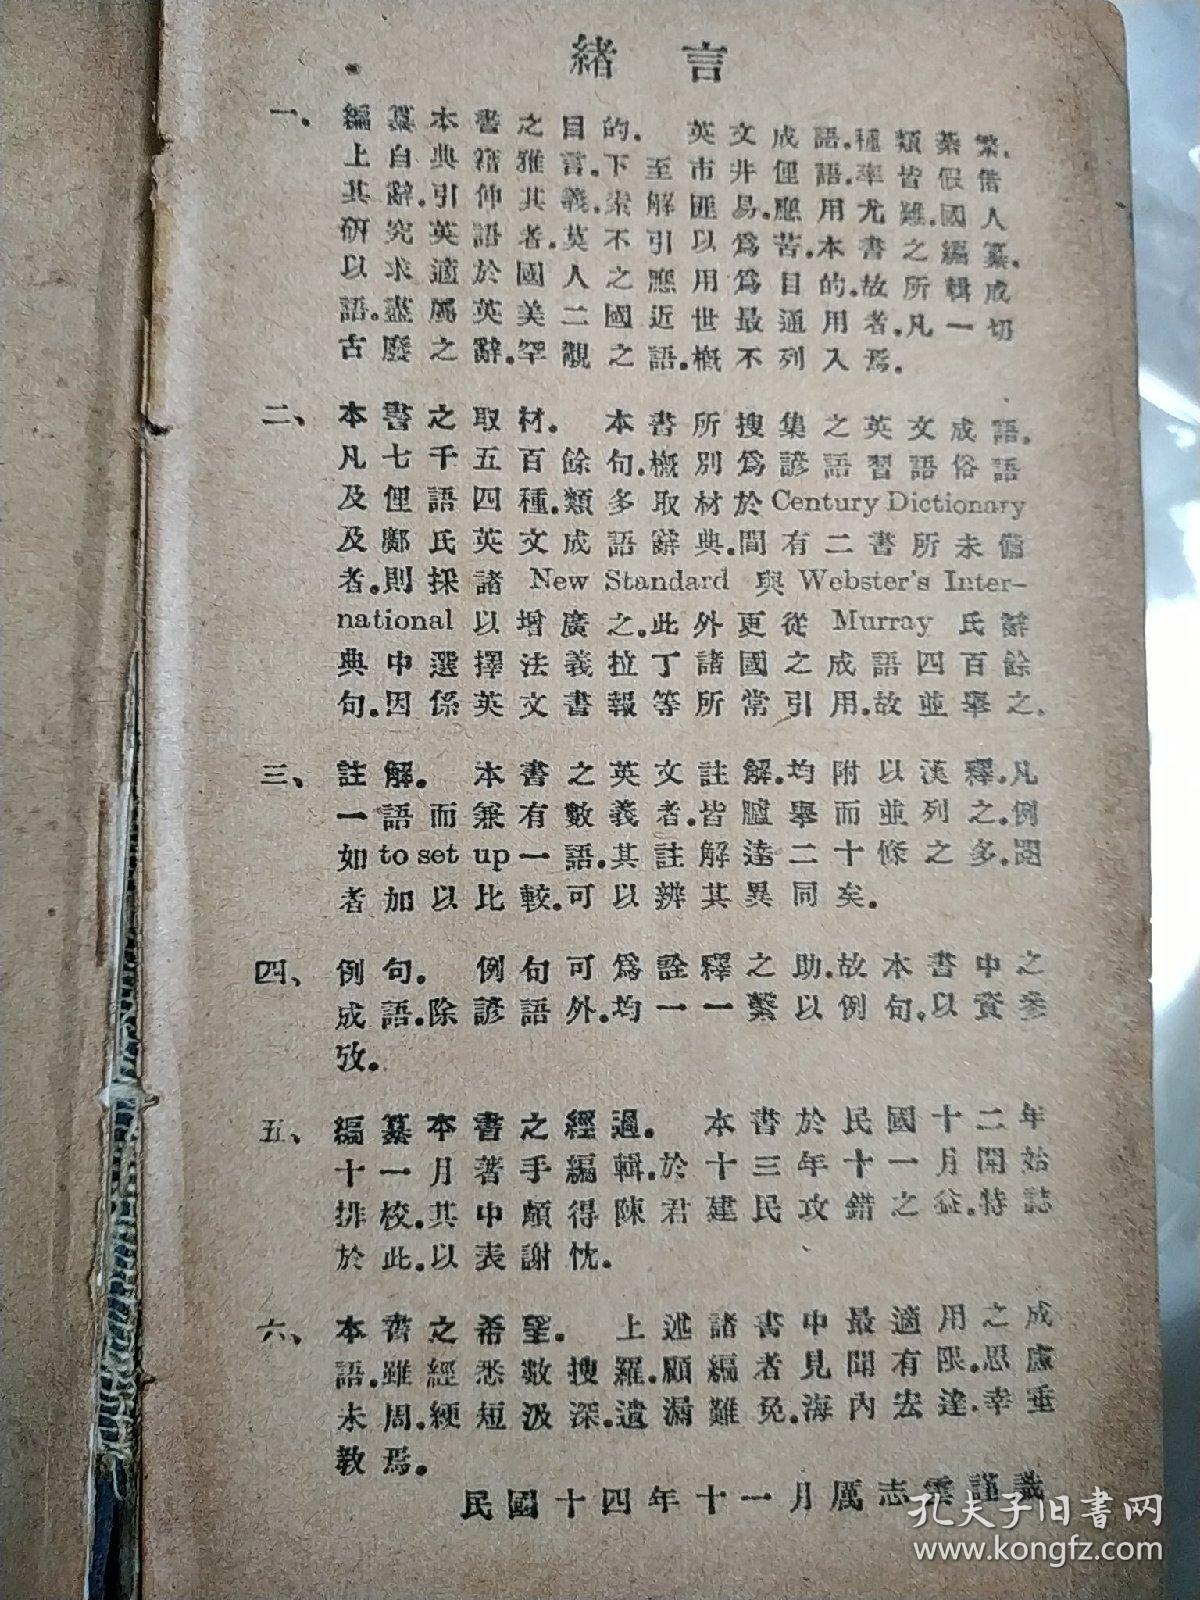 緒言
一、編纂本書之目的。英文成語，種類紊繁，
上自典籍雅言，下至市井俚語，率皆假借
其辭，引伸其義，索解匪易，應用尤難，國人
研究英語者，莫不引以爲苦，本書之編纂，
以求適於國人之應用爲目的，故所輯成
語，盡屬英美二國近世最通用者，凡一切
古廢之辭，罕覯之語，概不列入焉。
二、本書之取材。本書所搜集之英文成語，
凡七千五百餘句，概別爲諺語習語俗語
及俚語四種，類多取材於Century Dictionary
及鄺氏英文成語辭典，間有二書所未備
者，則採諸 New Standard 與 Webster's Inter-
national 以增廣之，此外更從 Murray 氏辭
典中選擇法義拉丁諸國之成語四百餘
句，因係英文書報等所常引用，故並舉之。
三、註解。本書之英文註解，均附以漢釋，凡
一語而兼有數義者，皆臚舉而並列之，例
如 to set up 一語，其註解達二十條之多，閱
者加以比較，可以辨其異同矣。
四、例句。例句可爲詮釋之助，故本書中之
成語，除諺語外，均一一繫以例句，以資參
攷。
五、編纂本書之經過。本書於民國十二年
十一月著手編輯，於十三年十一月開始
排校，其中頗得陳君建民攻錯之益，特誌
於此，以表謝忱。
六、本書之希望。上述諸書中最適用之成
語，雖經悉數搜羅，顧編者見聞有限，思慮
未周，綆短汲深，遺漏難免，海內宏達，幸垂
教焉。
民國十四年十一月厲志雲謹識
孔夫子旧书网
www.kongfz.com